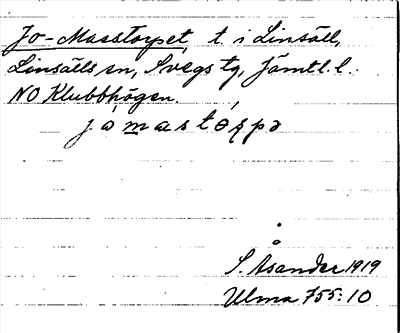 Jo-Masstorpet, t. i Linsäll,
Linsälls sn, Svegs tg, Jämtl. l.
NO Klubbhögen.
j o m a s t o r p ə
S. Åsander 1919
Ulma 755:10